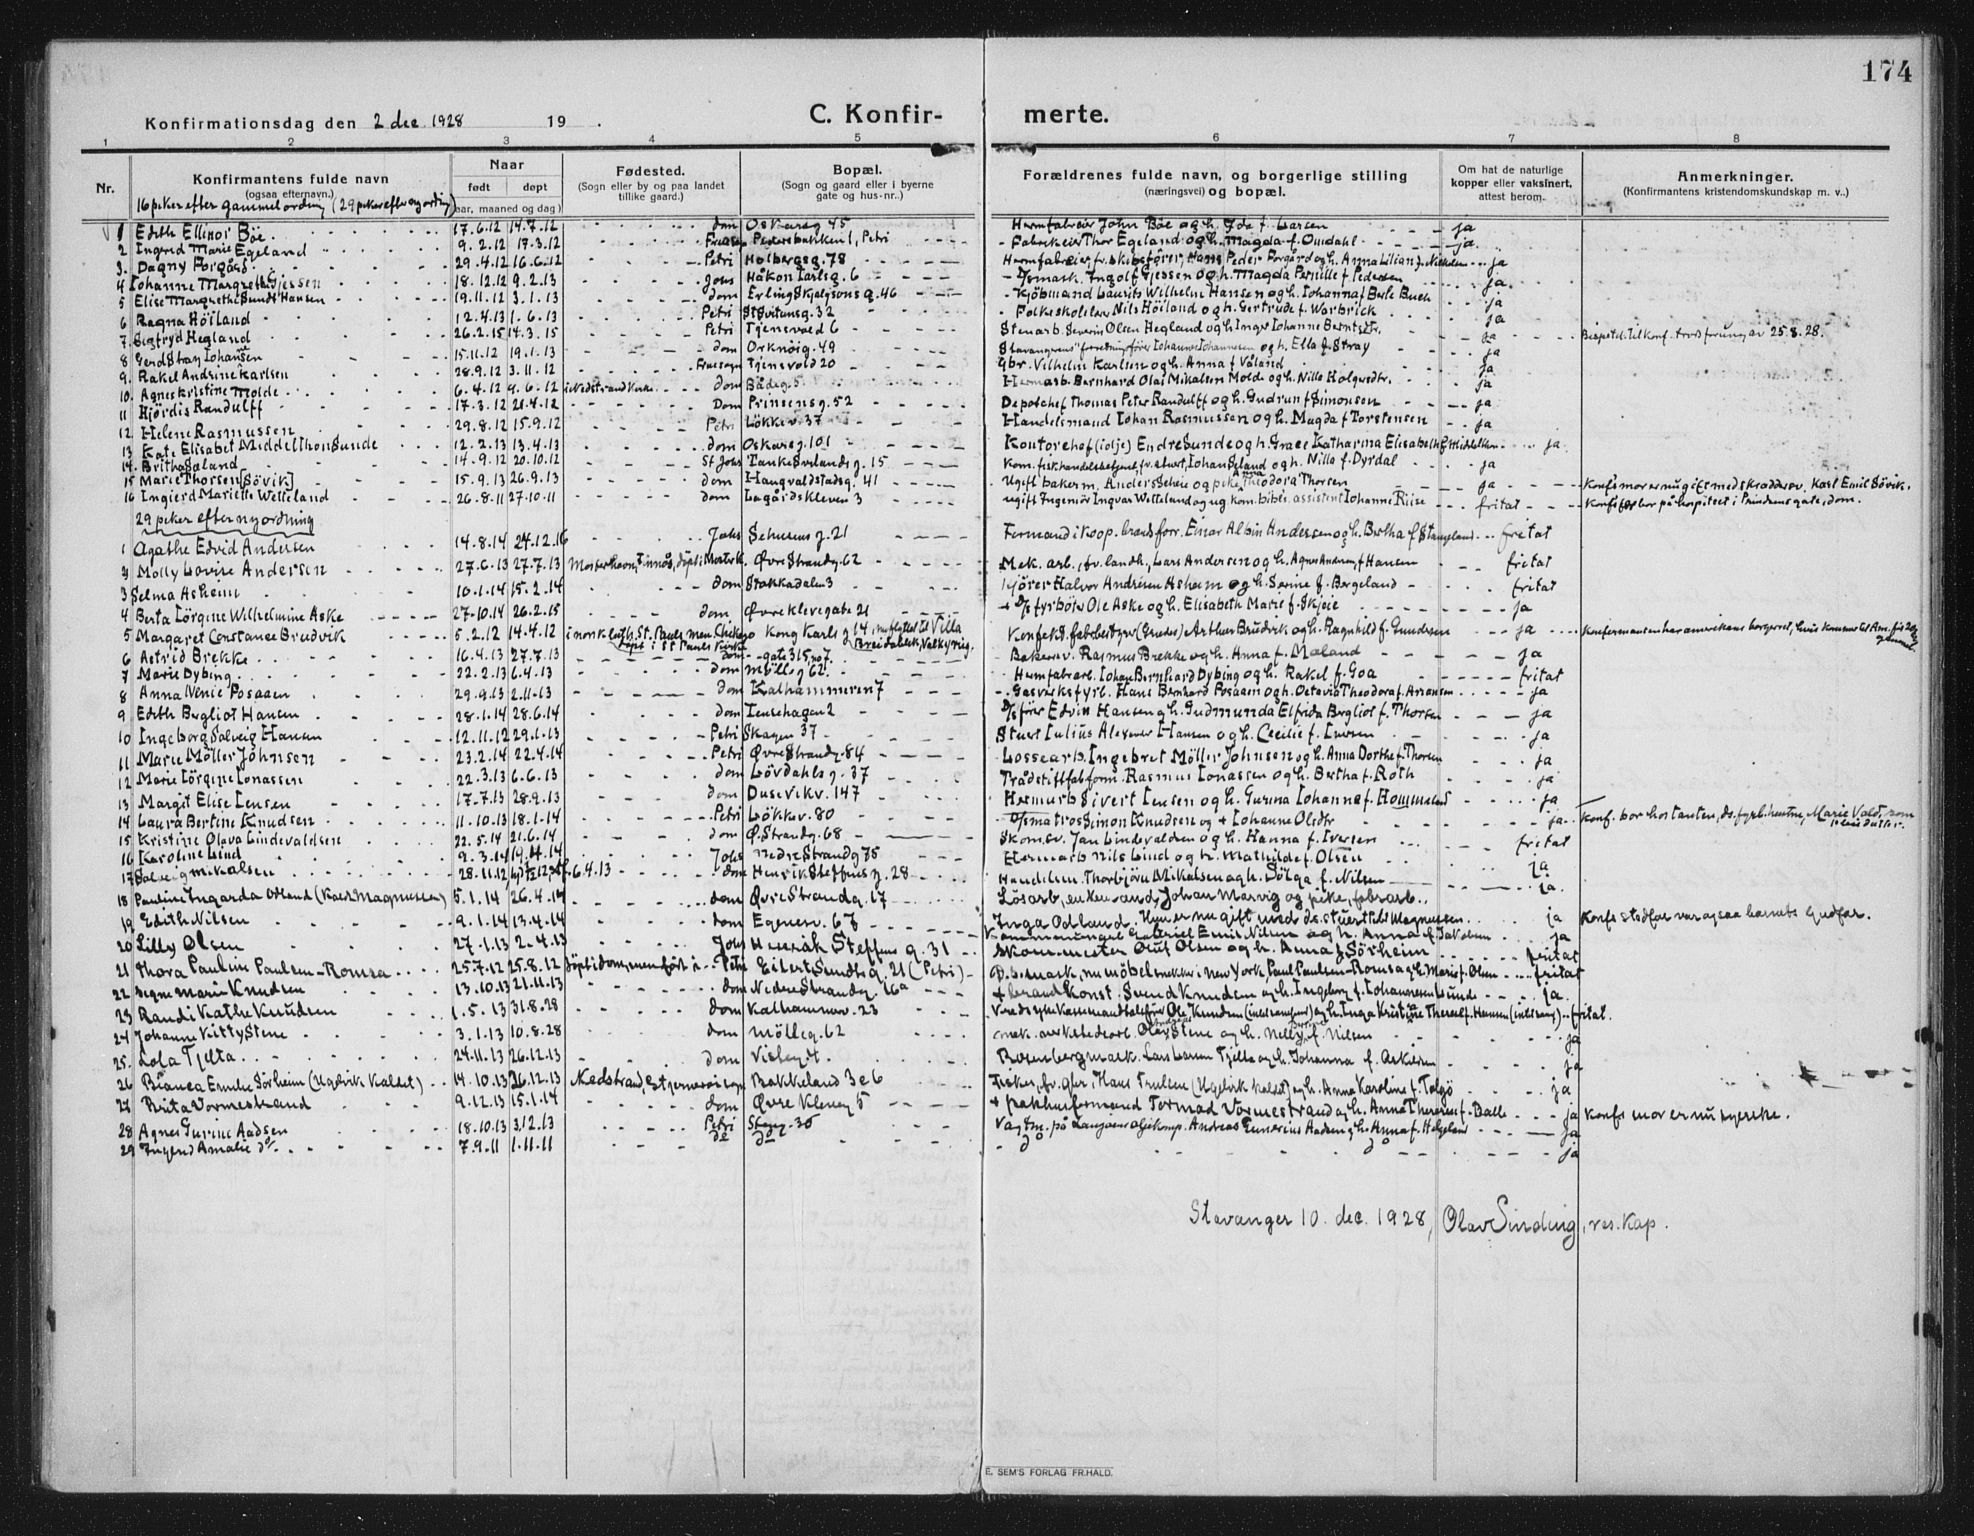 174
Konfirmationsdag den 2 dec. 1928 19 .
C. Konfirmerte.
1 2 3 4 5 6 7 8
Nr.
Konfirmantens fulde navn
(ogsaa efternavn.)
Naar
født døpt
(aar, maaned og dag)
Fødested.
(Sogn eller by og paa landet
tillike gaard.)
Bopæl.
(Sogn og gaard eller i byerne
gate og hus-nr..)
Forældrenes fulde navn, og borgerlige stilling
(næringsvei) og bopæl.
Om hat de naturlige
kopper eller vaksinert,
attest herom.
Anmerkninger.
(Konfirmantens kristendomskundskap m. v..)
16 piker efter gammel ordning (29 piker efter ny ordning)
1 Edith Ellinor Böe 17.6.12 14.7.12 dom Oskarsg 45 Hermfabreier John Böe og h. Ida f. Larsen ja
2 Ingrid Marie Egeland 9.2.12 17.3.12 Pedersbakken 1, Petri Fabrikeier Thor Egeland og h. Magda f. Omdahl ja
3 Dagny Forgård 29.4.12 16.6.12 Petri Holbergsg. 78 Hans Peder Forgård og h. Anna Lilian f. Nilsen ja
4 Johanne Margrethe Gjessen 18.12.12 9.2.13 Johs Håkon Jarlsg. 6 Ingolf Gjessen og h. Magda Pernille f. Pedersen ja
5 Elise Margrethe Sundt Hansen 19.11.12 3.1.13 dom Erling Skjalgsons g. 46 Kjöbmand Laurits Wilhelm Hansen og h. Johanna f Berle Buch ja
6 Ragna Höiland 12.4.13 1.6.13 Petri St Svitunsg. 32 Folkeskolelærer Nils Höiland og h. Gertrude f. Warbrick ja
7 Sigfryd Hegland 26.2.15 14.3.15 Petri Tjensvold 6 Stenarb. Severin Olsen Hegland og h. Inger Johanne Berntsdtr. ja
8 Gerd Stray Johansen 15.11.12 19.1.13 dom Orknöig. 49 og h. Ella f. Stray ja
9. Rakel Andrine Karlsen 28.9.12 3.11.12 Fruesogn Tjensvold 20 Gbr. Vilhelm Karlsen og h. Anna f Våland ja
10 Agnes Kristine Molde 6.4.12 9.6.12 i Nedstrand kirke dom Bådsg. 5 Hermarb. Bernhard Olai Mikalsen Mold og h. Nille Holgersdtr. ja
11 Hjördis Randulff 17.3.12 21.4.12 Dom Prinsensg. 52 Depotchef Thomas Peter Randulff og h. Gudrun f Simonsen ja
12 Helene Rasmussen 29.8.12 15.9.12 Petri Lökkev. 37 Handelsmand Johan Rasmussen og h. Magda f Torstensen ja
13 Kate Elisabet Middelthon Sunde 12.2.13 13.4.13 dom Oskarsg. 101 Kontorchef (olje) Endre Sunde og h. Grace Katharina Elisabeth f Middelthon ja
14. Britha Søland 14.9.12 20.10.12 St Johs Tanke Svilandsg. 15 og h. Nille f. Dyrdal ja
15 Marie Thorsen [Sövik] 15.9.13 26.9.13 dom Haugvaldstadsg. 41 Ugift bakerm. Anders Scheie og pike Anna Theodora Thorsen ja Konfs mor er nu gift med skrædderv. Karl Emil Sövik.
16 Ingierd Mariette Wetteland 26.8.11 27.10.11 dom Lagårdskleven 3 ugift Ingeniör Ingvar Wetteland og ug kom. bibl. assistent Johanne Riise fritat Konfs far bor på hospitset i Prindsensgate, dom.
29 piker efter ny ordning
1 Agathe Edvid Andersen 14.8.14 24.12.16 Johs Sehusens g. 21 Formand i Koop. brødforr. Einar Albin Andersen og h. Bertha f Stangeland fritat
2 Molly Lovise Andersen 27.6.13 27.7.13 Øvre Strandg. 62 Mek. arb., fv. landh., Lars Andersen og h. f Hansen fritat
3 Selma Asheim 10.1.14 15.2.14 dom Stokkadalen 3 Kjörer Halvor Andresen Asheim og h. Serine f. Bergeland fritat
4 Berta Jörgine Wilhelmine Aske 27.10.14 26.2.15 dom Øvre klevegate 21 + D/s fyrböter Ole Aske og h. Elisabeth Marie f. Skjeie ja
5 Margaret Constance Brudvik 5.2.12 14.4.12 i norsk luth. St. Pauls men. Chikago Kong Karls g 14, nu flyttet til Villa Breidablik, Valkyrieg. Arthur Brudvik og h. Ragnhild f. Gundersen ja
6 Astrid Brekke 16.4.13 27.7.13 döpt i St Pauls kirke dom Bakersv. Rasmus Brekke og h. Anna f. Mæland ja
7 Marie Dybing 22.2.13 6.4.13 dom Mölleg 62 Hermfabarb. Johan Bernhard Dybing og h. Rakel f. Goa fritat
8 Anna Venie Fosaaen 29.9.13 2.11.13 dom Kalhammeren 7 Gasverksfyrb. Hans Bernhard Fosaaen og h. Octavia Theodora f. Amansen ja
9 Edith Bergliot Hansen 28.1.14 28.6.14 dom Jensehagen 2 D/s förer Edvin Hansen og h. Gudmunda Elfrida Bergliot f. Thorsen ja
10 Ingeborg Solveig Hansen 12.11.12 29.1.13 Petri Skagen 37 Stuert Julius Alexander Hansen og h. Cecilie f. Iversen ja
11 Marie Möller Johnsen 23.2.14 22.4.14 Petri Øvre Strandg. 84 Lossearb. Ingebret Möller Johnsen og h. Anna Dorthe f. Thorsen ja
12 Marie Jörgine Jonassen 22.3.13 6.6.13 dom Lövdahlsg. 37 Trådstiftfabform. Rasmus Jonassen og h. Bertha f. Roth ja
13 Margit Elise Jensen 17.7.13 28.9.13 dom Dusevikv. 147 Hermarb Sivert Jensen og h. Gurina Johanna f. Hommeland ja
14 Laura Bertine Knudsen 11.10.13 18.1.14 Petri Lökkev. 80 D/s matros Simon Knudsen og + Johanne Olsdtr ja
15 Kristine Olava Lindevaldsen 22.5.14 21.6.14 dom Ø. Strandg. 68 Skom.sv. Jan Lindevalden og h. Hanna f. Iversen fritat
16 Karoline Lind 9.3.14 19.4.14 Johs Nedre Strandg 75 Hermarb Nils Lind og h. Mathilde f. Olsen ja
17 Solveig Mikalsen 28.11.12 6.4.13 dom Henrik Steffens g. 28 Handelsm. Thorbjörn Mikalsen og h. Solga f. Nilsen ja
18 Pauline Ingarda Odland (Kaldt Magnussen) 5.1.14 26.4.14 dom Øvre Strandg. 17 Lösarb, enkemand, Johan Marvig og pike, fabarb.
Inga Odland. Hun er nu gift med ds. stuert Nils Magnussen ja Konfs stedfar var ogsaa barnets Gudfar.
19 Edith Nilsen 9.1.14 13.4.14 dom Egenesv. 67 Gabriel Emil Nilsen og h. Anna f. Jakobsen ja
20 Lilly Olsen 27.1.13 2.4.13 Johs Henrik Steffens g. 31 Skom.mester Oluf Olsen og h. Anna f Sörheim fritat
21 Thora Pauline Paulsen-Romsa 25.7.12 25.8.12 döpt i dom, men födt i Petri Eilert Sundts g. 21 (Petri) nu möbelsnekker i New York, Paul Paulsen-Romsa og h. Marie f. Olsen fritat
22 Signe Marie Knudsen 13.10.13 21.11.13 dom Nedre Strandg. 16a Svend Knudsen og h. Ingeborg f. Johannesen Lunde ja.
23 Randi Kathe Knudsen 1.5.13 31.8.28 dom Kalhammerv. 23 Ole Knudsen og h. Inga Kristine Therese f. Hansen fritat.
24 Johanne Kitty Stene 3.1.13 10.8.28 dom Mölleg. 62 Olav Stene og h. Nelly f. Nilsen ja
25. Lola Tjelta 24.11.13 26.12.13 dom Rosenbergmek. Lars Larsen Tjelta og h. Johanna f. Askelsen ja
26 Bianca Emilie Sörheim (Ugelvik kaldet) 14.10.13 26.12.13 Nedstrand, Bakkeland 3 c 6 Fisker, fv. gbr, Hans Trulsen (Ugelvik kaldet) og h. Anna Karoline f. Talgö ja
27 Brita Vormestrand 9.12.13 15.1.14 dom Øvre Kleveg 5 + pakhusformand Tormod Vormestrand og h. Anna Therese f. Balle ja Konfs mor er nu syerske.
28 Agnes Gurine Aadsen 18.10.13 3.12.13 Petri Steng. 30 Andreas Gunerius Aadsen og h. Anna f. Helgeland ja
29 Ingerd Amalie do. 7.9.11 1.11.11 do do do do ja
Stavanger 10. dec. 1928, Olav Sinding, res. kap.
E. SEM'S FORLAG FR.HALD.